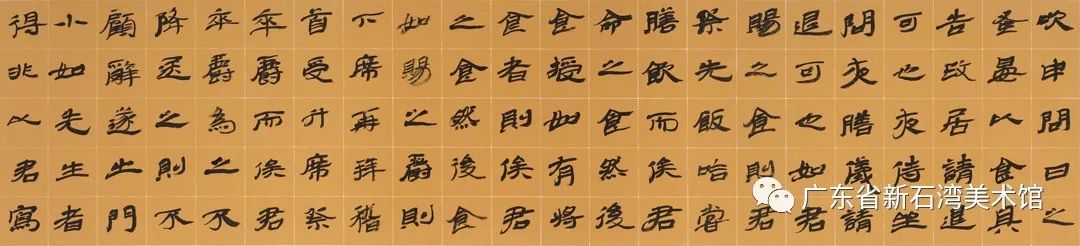 吹申問日之
蚤晏以食具
告改居請進
可也夜侍坐
問夜膳儀請
退可也如君
賜之食則君
祭先飯哈嘗
膳飲而俟君
命之食然後
食授如有將
食者則俟君
之食然後食
如賜之爵則
不席再拜稽
首受升席祭
卒爵而俟君
卒爵為之不
降送之則不
顧辭遂出門
小如先生者
得非以君寫
广东省新石湾美术馆